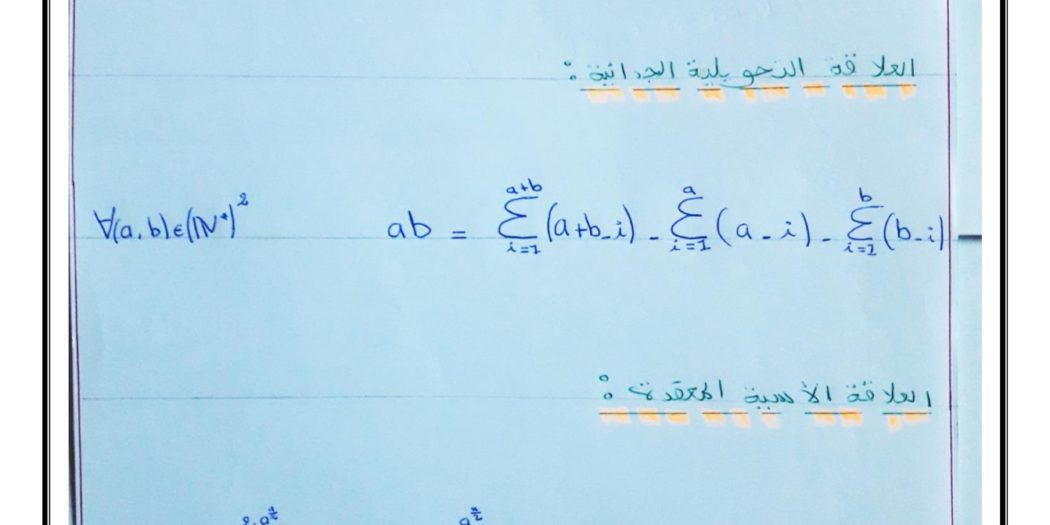 العلاقة التحويلية الجدائية :
∀(a,b)∈(IN*)² ab = \sum_{i=1}^{a+b}(a+b-i) - \sum_{i=1}^{a}(a-i) - \sum_{i=1}^{b}(b-i)
العلاقة الأسية المعقدة :